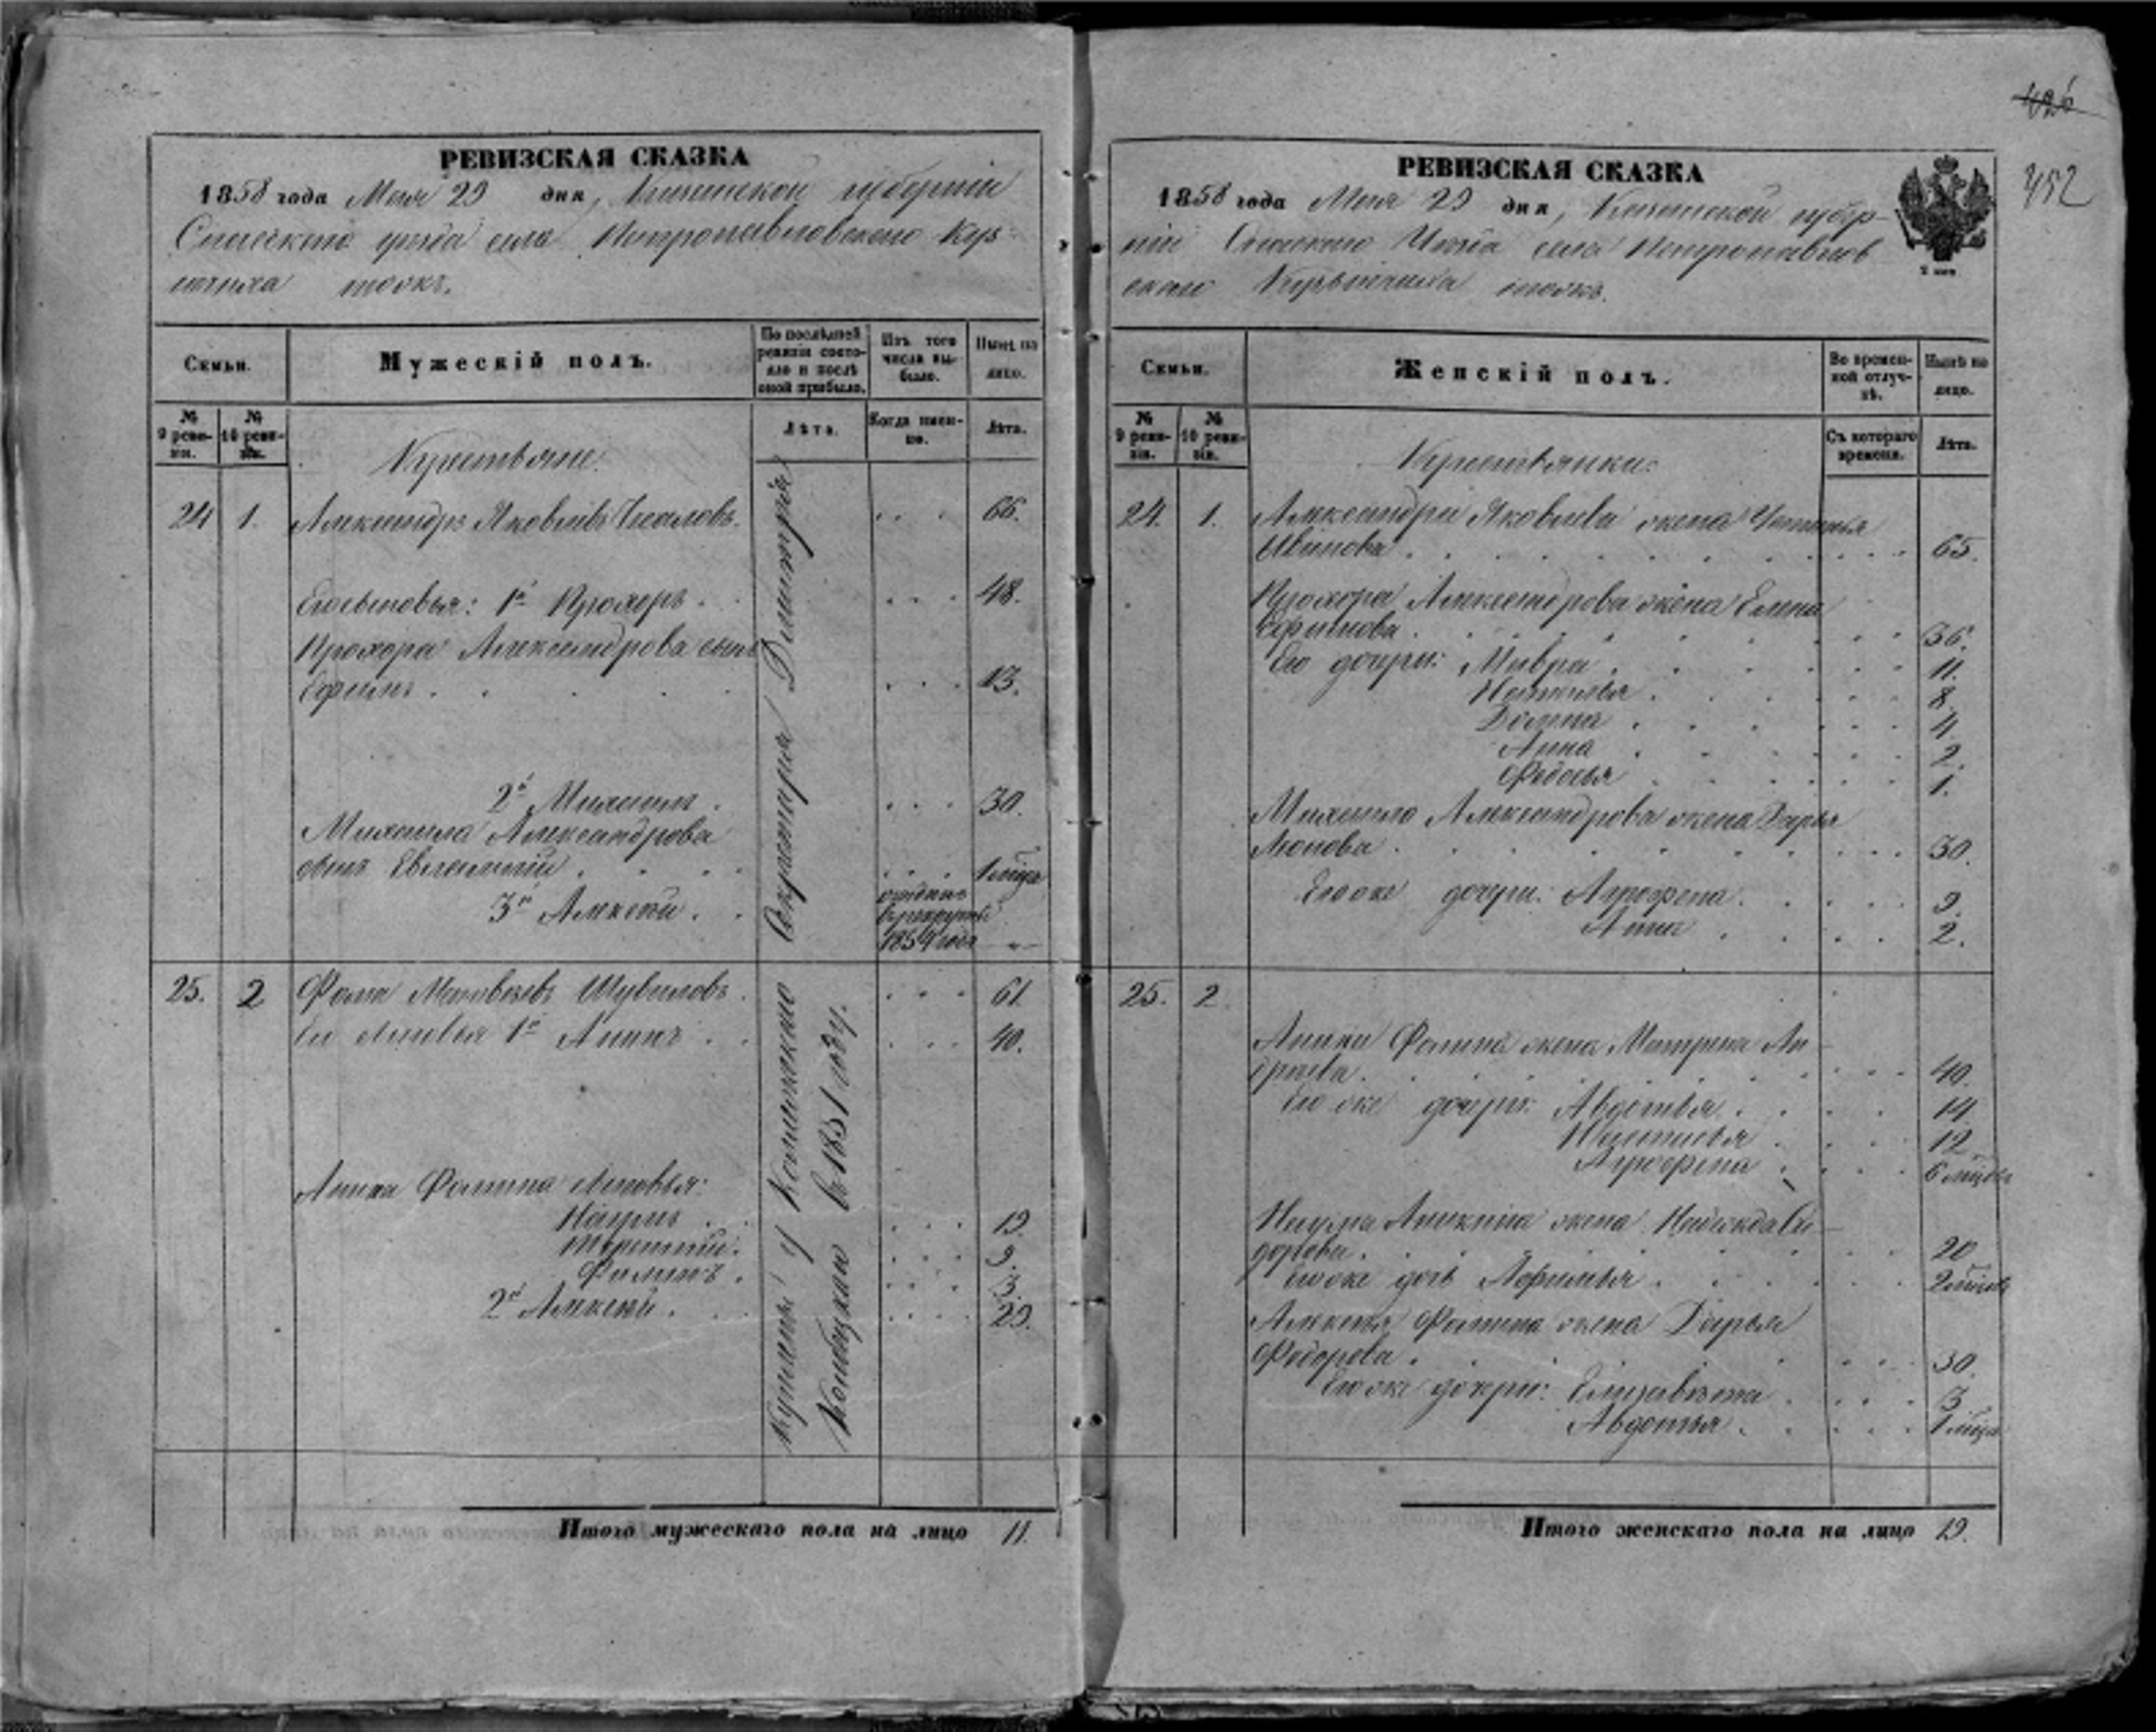 426
452
РЕВИЗСКАЯ СКАЗКА
1858 года Мая 29 дня, Казанской губерніи
Спаскаго уезда села Петропавловскаго Куз-
тожъ.
Семьи.
Мужескій полъ.
По послѣдней ревизіи состояло и послѣ оной прибыло.
Изъ того числа выбыло.
Нынѣ на лицо.
№ 9 ревизіи.
№ 10 ревизіи.
Лѣта.
Когда именно.
Лѣта.
Крестьяне:
24 1. Александръ Яковлевъ 66.
Его сыновья: 1й Прохоръ 48.
Прохора Александрова сынъ
Ефимъ 13.
2й Михаилъ 30.
Михаила Александрова
сынъ Евлампій 1 мѣца
3й Алексѣй отданъ
въ рекруты
1854 года
25. 2 Фома Матвѣевъ Шуваловъ 61.
Его сыновья 1й Аника 40.
Аники Фомина сыновья:
Наумъ 19.
Терентій 9.
Филипъ 3.
2й Алексѣй 29.
Куплены у
Секретаря Дмитрія
въ 1851 году.
Итого мужескаго пола на лицо 11.
РЕВИЗСКАЯ СКАЗКА
1858 года Мая 29 дня, Казанской губер-
ніи Спаскаго Уезда села Петропавлов
скаго тожъ.
2 коп
Семьи.
Женскій полъ.
Во временной отлучкѣ.
Нынѣ на лицо.
№ 9 ревизіи.
№ 10 ревизіи.
Съ котораго времени.
Лѣта.
Крестьянки:
24. 1. Александра Яковлева жена
Иванова 65.
Прохора Александрова жена Елена
Ефимова 36.
Его дочери: Мавра 11.
Наталья 8.
Домна 4.
Анна 2.
Федосья 1.
Михаила Александрова жена Дарья
30.
Его же дочери: Агрофена 9.
Анна 2.
25. 2.
Аники Фомина жена Матрена Ан-
дреева 40.
Его же дочери: Авдотья 14.
Настасья 12
Агрофена 6 мѣцовъ
Наума Аникина жена Надежда Си-
дорова 20
Его же дочь Афимья 2 мѣцовъ
Алексѣя Фомина жена Дарья
Федорова 30.
Его же дочери: Елизавета 3
Авдотья 1 мѣца
Итого женскаго пола на лицо 19.